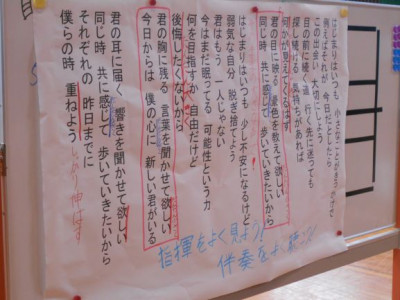 はじまりはいつも 小さなことのきっかけだけど
例えばそれが 今日だとしたら
この出会い 大切にしよう
目の前に続く道 行く先に迷っても
探し続ける 気持ちがあれば
何かが見えてくるはず
君の目に映る 景色を教えて欲しい
同じ時 共に感じて 歩いていきたいから
はじまりはいつも 少し不安になるけど
弱気な自分 脱ぎ捨てよう
君はもう 一人じゃない
今はまだ眠ってる 可能性という力
何を目指すか 自由だけど
後悔したくないから
君の胸に残る 言葉を聞かせて欲しい
今日からは 僕の心に 新しい君がいる
君の耳に届く 響きを聞かせて欲しい
同じ時 共に感じて 歩いていきたいから
それぞれの 昨日までに
僕らの時 重ねよう
しっかり伸ばす
指揮をよく見よう!
伴奏をよく聴こう!